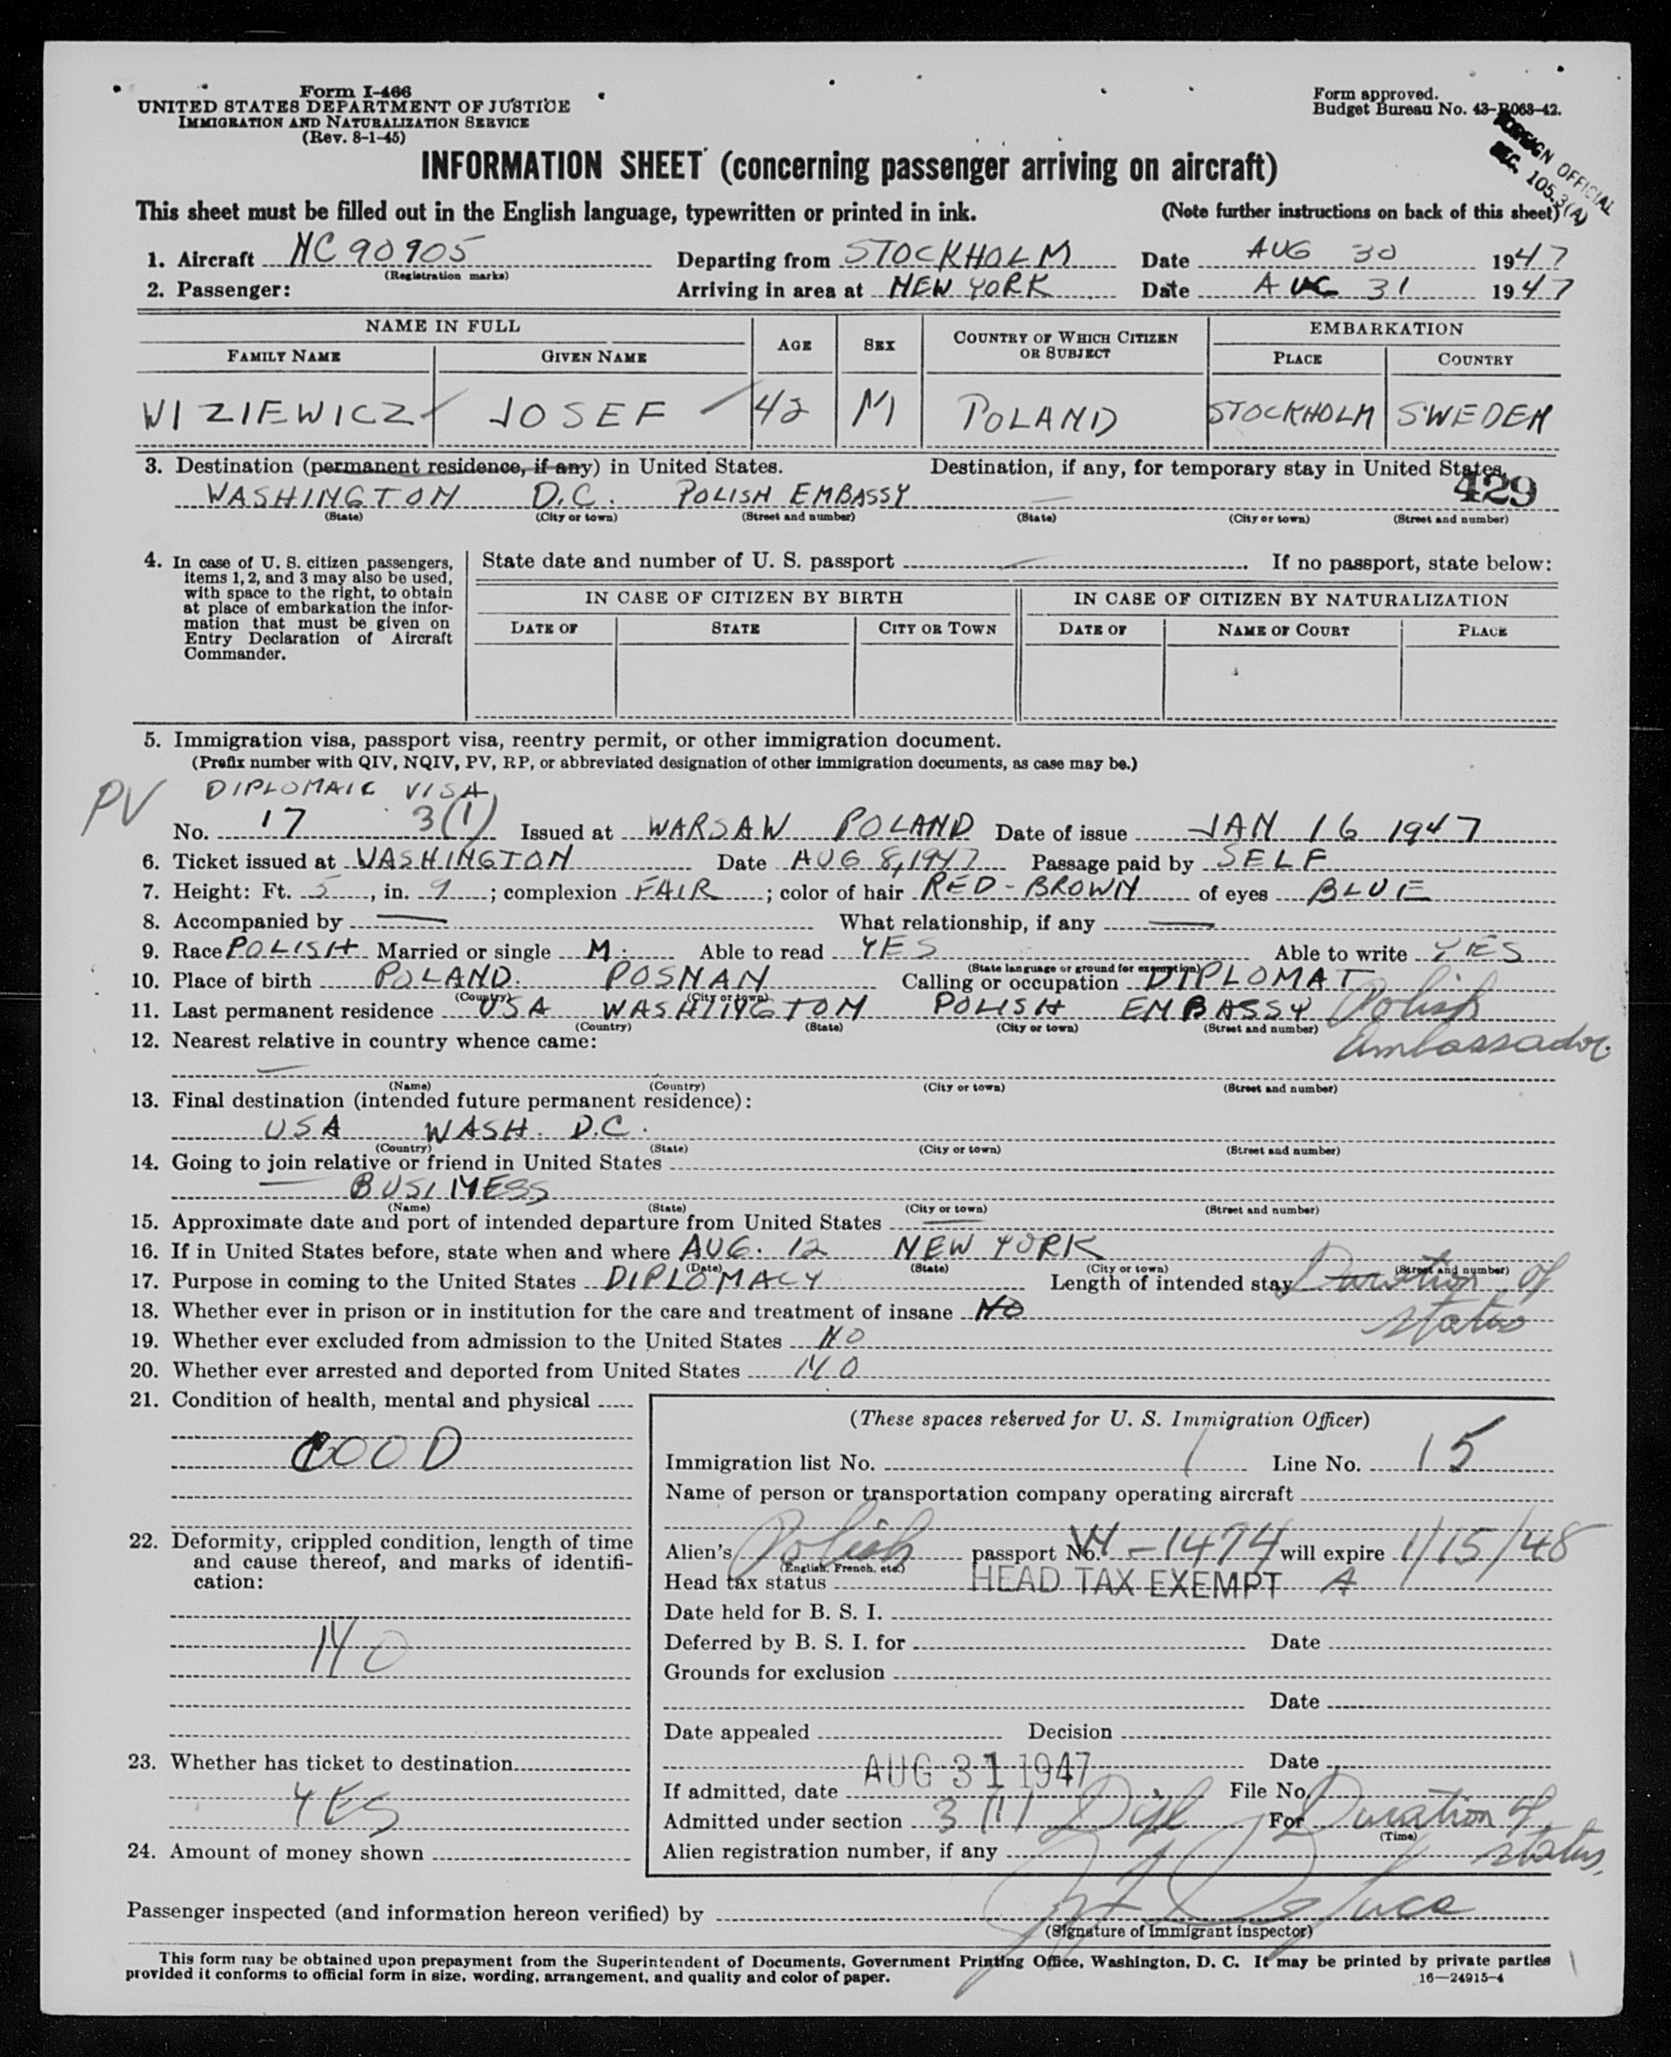 Form I-466
UNITED STATES DEPARTMENT OF JUSTICE
IMMIGRATION AND NATURALIZATION SERVICE
(Rev. 8-1-45)
Form approved.
Budget Bureau No. 43-R068-42.
FOREIGN OFFICIAL
SEC. 105.3(A)
INFORMATION SHEET (concerning passenger arriving on aircraft)
This sheet must be filled out in the English language, typewritten or printed in ink. (Note further instructions on back of this sheet)
1. Aircraft NC 90905 Departing from STOCKHOLM Date AUG 30 1947
(Registration marks)
2. Passenger: Arriving in area at NEW YORK Date AUG 31 1947
NAME IN FULL AGE SEX COUNTRY OF WHICH CITIZEN OR SUBJECT EMBARKATION
FAMILY NAME GIVEN NAME PLACE COUNTRY
WIZIEWICZ JOSEF 42 M POLAND STOCKHOLM SWEDEN
3. Destination (permanent residence, if any) in United States. Destination, if any, for temporary stay in United States.
429
WASHINGTON D.C. POLISH EMBASSY —
(State) (City or town) (Street and number) (State) (City or town) (Street and number)
4. In case of U. S. citizen passengers, items 1, 2, and 3 may also be used, with space to the right, to obtain at place of embarkation the information that must be given on Entry Declaration of Aircraft Commander.
State date and number of U. S. passport If no passport, state below:
IN CASE OF CITIZEN BY BIRTH IN CASE OF CITIZEN BY NATURALIZATION
DATE OF STATE CITY OR TOWN DATE OF NAME OF COURT PLACE
5. Immigration visa, passport visa, reentry permit, or other immigration document.
(Prefix number with QIV, NQIV, PV, RP, or abbreviated designation of other immigration documents, as case may be.)
PV DIPLOMAIC VISA
No. 17 3(1) Issued at WARSAW POLAND Date of issue JAN 16 1947
6. Ticket issued at WASHINGTON Date AUG 8, 1947 Passage paid by SELF
7. Height: Ft. 5, in. 9; complexion FAIR; color of hair RED-BROWN of eyes BLUE
8. Accompanied by — What relationship, if any —
9. Race POLISH Married or single M. Able to read YES Able to write YES
(State language or ground for exemption)
10. Place of birth POLAND. POSNAN Calling or occupation DIPLOMAT
(Country) (City or town)
11. Last permanent residence USA WASHINGTON POLISH EMBASSY Polish
(Country) (State) (City or town) (Street and number)
Ambassador.
12. Nearest relative in country whence came:
—
(Name) (Country) (City or town) (Street and number)
13. Final destination (intended future permanent residence):
USA WASH. D.C.
(Country) (State) (City or town) (Street and number)
14. Going to join relative or friend in United States
— BUSINESS
(Name) (State) (City or town) (Street and number)
15. Approximate date and port of intended departure from United States —
16. If in United States before, state when and where AUG. 12 NEW YORK
(Date) (State) (City or town) (Street and number)
17. Purpose in coming to the United States DIPLOMACY Length of intended stay Duration of
status
18. Whether ever in prison or in institution for the care and treatment of insane NO
19. Whether ever excluded from admission to the United States NO
20. Whether ever arrested and deported from United States NO
21. Condition of health, mental and physical
GOOD
22. Deformity, crippled condition, length of time and cause thereof, and marks of identification:
NO
23. Whether has ticket to destination
YES
24. Amount of money shown
(These spaces reserved for U. S. Immigration Officer)
Immigration list No. 1 Line No. 15
Name of person or transportation company operating aircraft
Alien's Polish passport No. W-1474 will expire 1/15/48
(English, French, etc.)
Head tax status HEAD TAX EXEMPT A
Date held for B. S. I.
Deferred by B. S. I. for Date
Grounds for exclusion
Date
Date appealed Decision
Date
If admitted, date AUG 31 1947 File No.
Admitted under section 3(1) Dipl For Duration of
(Time)
status.
Alien registration number, if any
Passenger inspected (and information hereon verified) by
(Signature of Immigrant inspector)
This form may be obtained upon prepayment from the Superintendent of Documents, Government Printing Office, Washington, D. C. It may be printed by private parties
provided it conforms to official form in size, wording, arrangement, and quality and color of paper. 16—24915-4